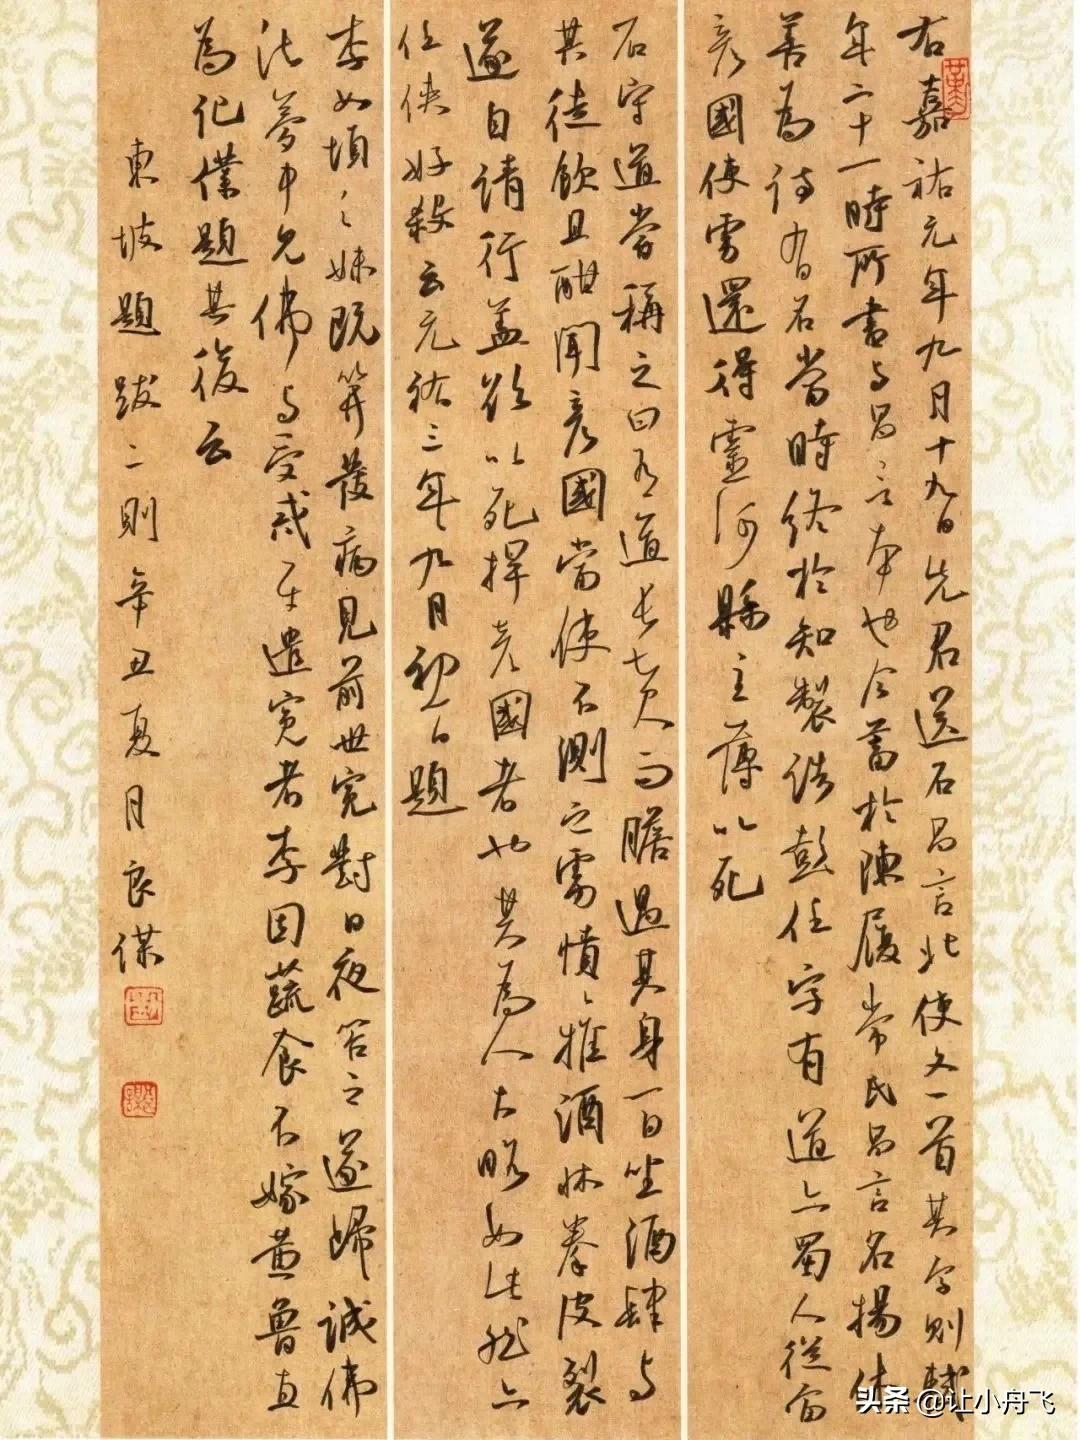 右嘉祐元年九月十九日先君送石昌言北使文一首其字則軾
年二十一時所書與昌言本也今蓄於陳履常氏昌言名揚休
善為詩有名當時終於知製誥彭任字有道亦蜀人從富
彥國使虜還得靈河縣主薄以死
石守道嘗稱之曰有道長七尺而膽過其身一日坐酒肆與
其徒飲且酣聞彥國當使不測之虜憤憤推酒床拳皮裂
遂自請行蓋欲以死捍彥國者也其為人大略如此然亦
任俠好殺云元祐三年九月初一日題
李如塤之妹既笄發病見前世冤對日夜笞之遂歸誠佛
法夢中見佛與受戒平遣冤者李因蔬食不嫁黃魯直
為記僕題其後云
東坡題跋二則辛丑夏月良謀
头条 @让小舟飞